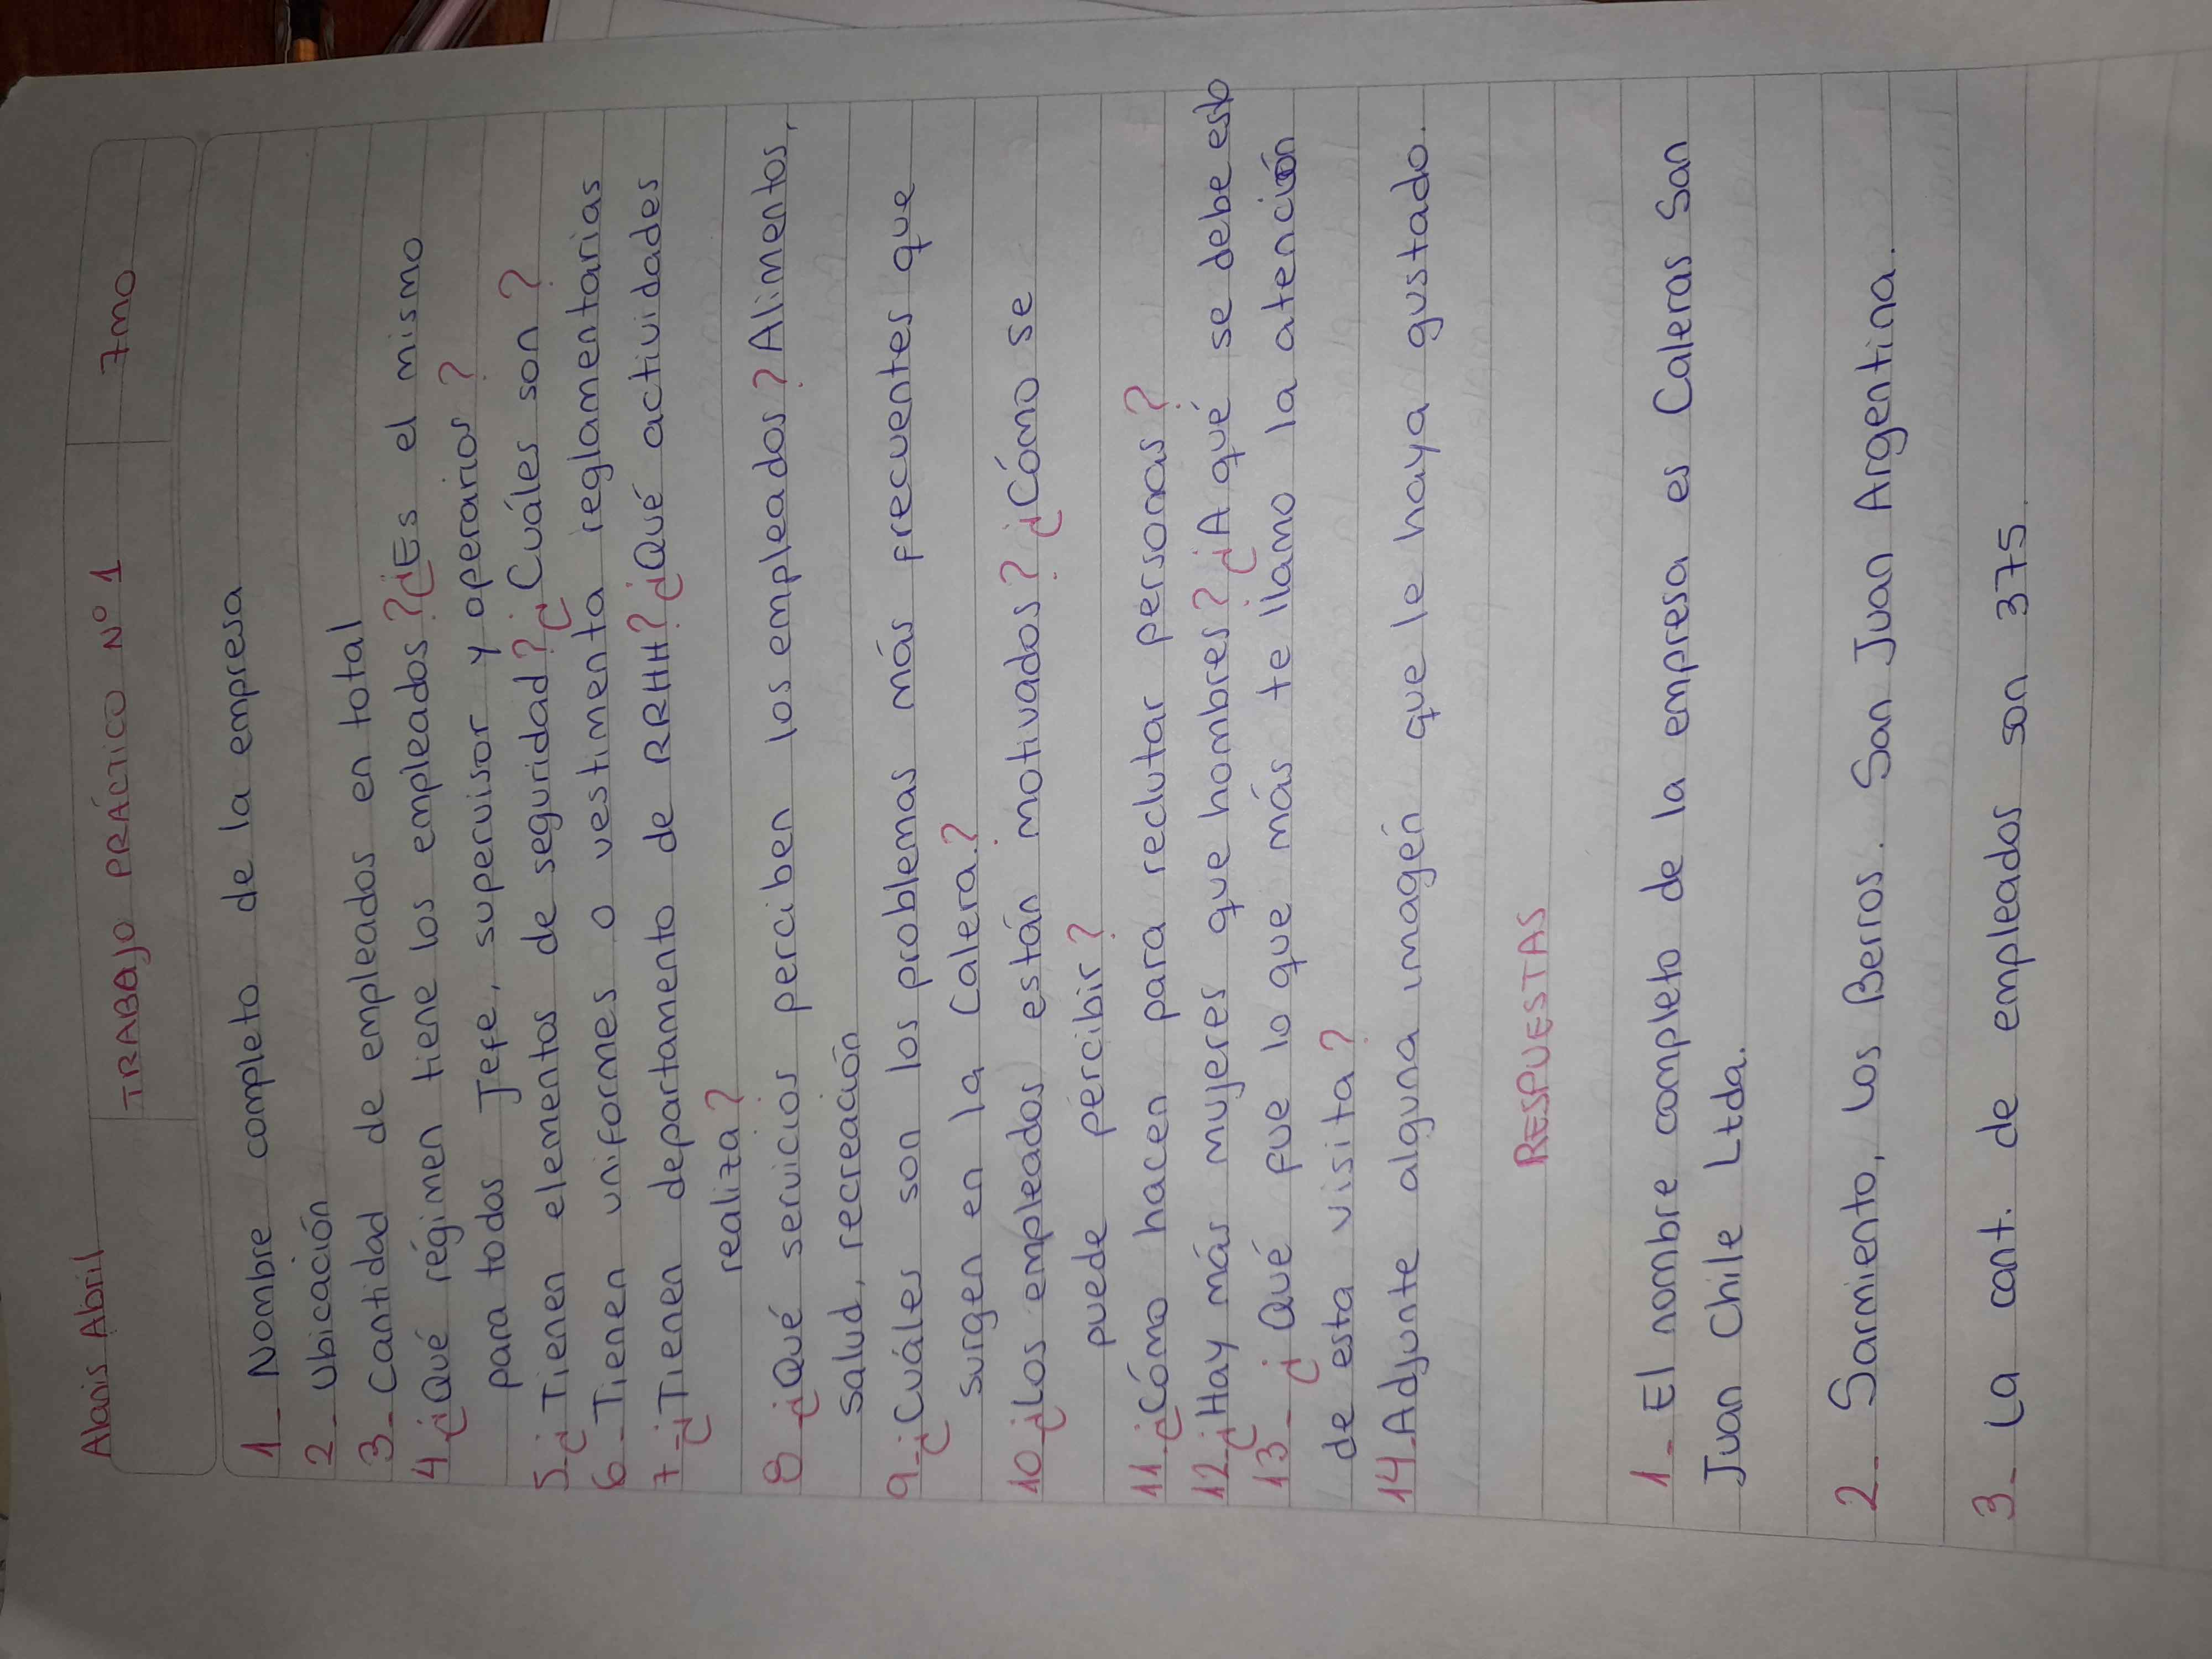 Alanis Abril
TRABAJO PRÁCTICO Nº 1
7mo
1_ Nombre completo de la empresa
2_ Ubicación
3_ Cantidad de empleados en total
4_ ¿Qué régimen tiene los empleados? ¿Es el mismo
para todos Jefe, supervisor y operarios?
5_ ¿Tienen elementos de seguridad? ¿Cuáles son?
6_ Tienen uniformes o vestimenta reglamentarias
7_ ¿Tienen departamento de RRHH? ¿Qué actividades
realiza?
8_ ¿Qué servicios perciben los empleados? Alimentos,
salud, recreación
9_ ¿Cuáles son los problemas más frecuentes que
surgen en la Calera.?
10_ ¿Los empleados están motivados? ¿Cómo se
puede percibir?
11_ ¿Cómo hacen para reclutar personas?
12_ ¿Hay más mujeres que hombres? ¿A qué se debe esto
13_ ¿Qué fue lo que más te llamo la atención
de esta visita?
14_ Adjunte alguna imagén que le haya gustado.
RESPUESTAS
1_ El nombre completo de la empresa es Caleras San
Juan Chile Ltda.
2_ Sarmiento, Los Berros. San Juan Argentina.
3_ La cant. de empleados son 375.